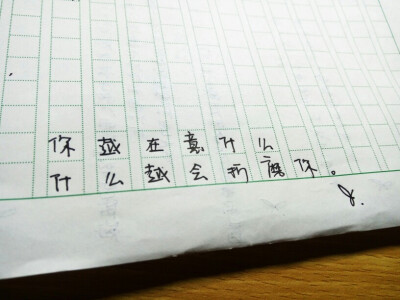 你越在意什么
什么越会折磨你。
y.